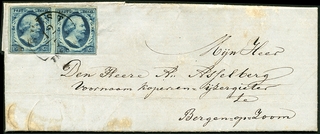 Mijn Heer
Den Heere A. Asselberg
Voornaam koperen ijzergieter
te
Bergen op Zoom